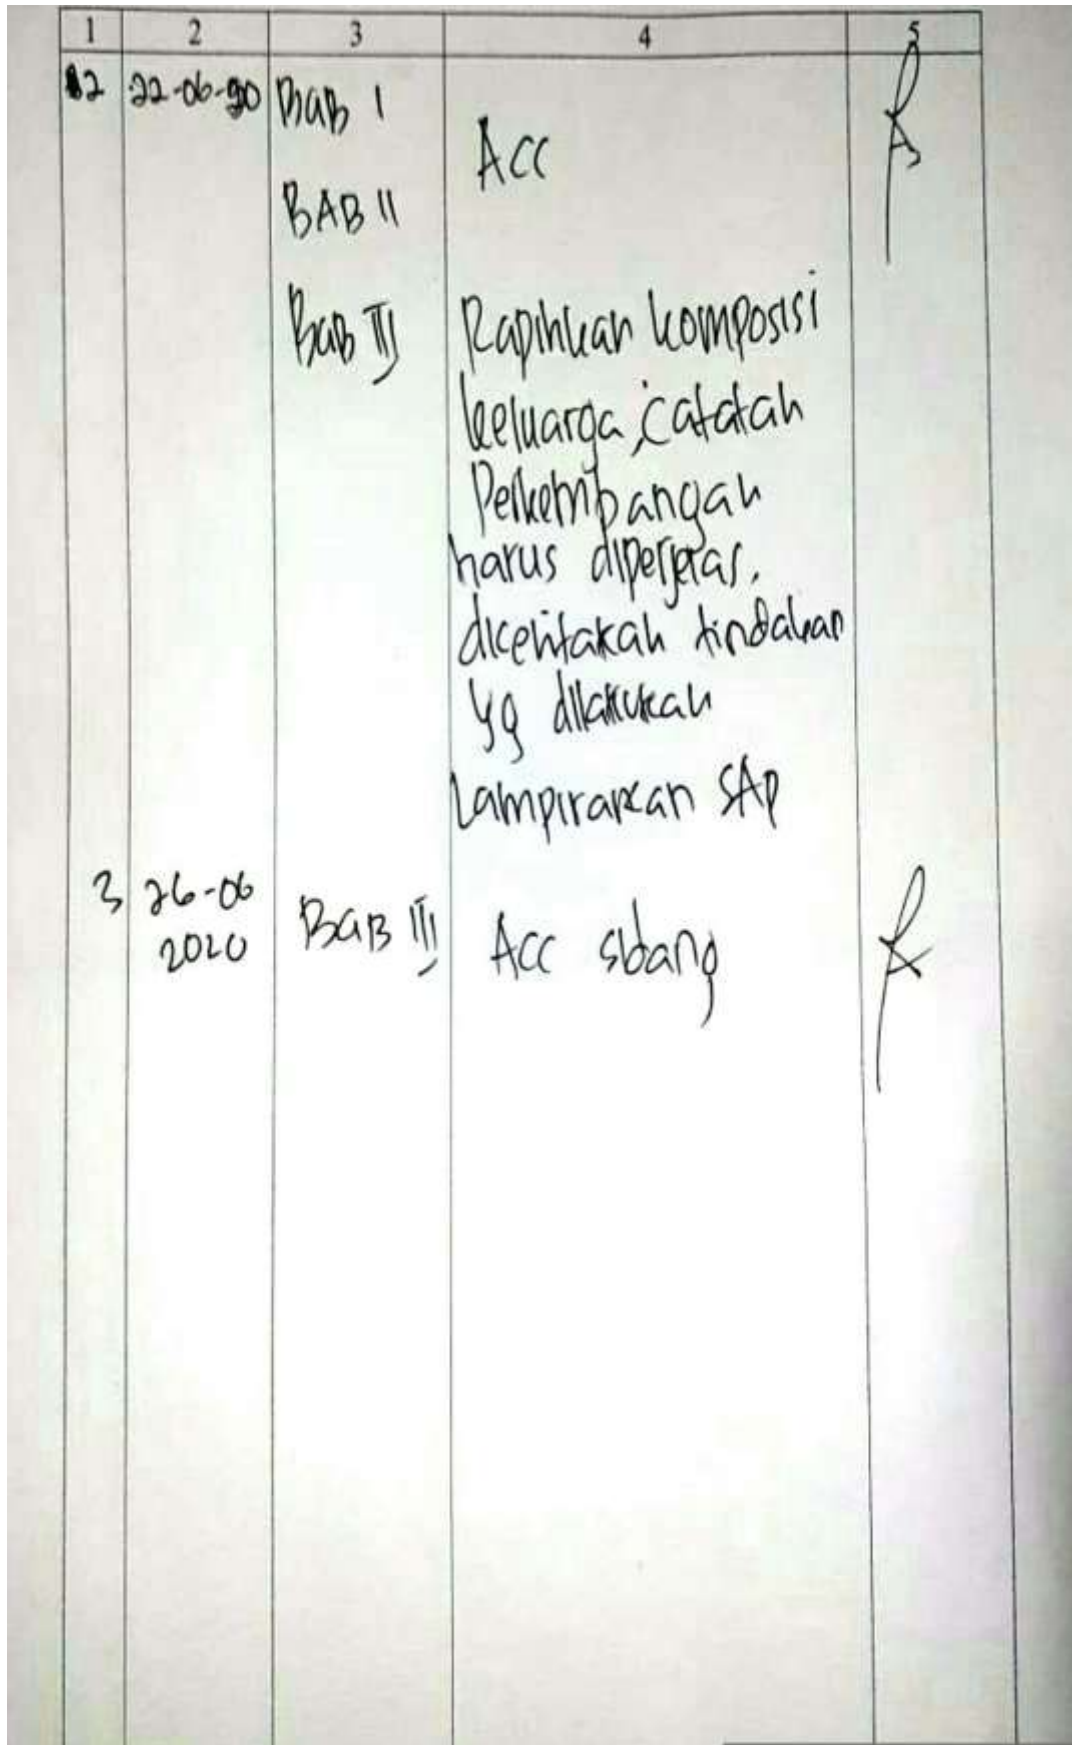 1 2 3 4 5
2 22-06-20 BaB I
Acc
BAB II
BaB III Rapihkan komposisi
keeluarga, catatan
Perkembangan
harus diperjelas.
diceritakan tindakan
yg dilakukan
Lampirankan SAP
3 26-06
2020 BaB III Acc sidang